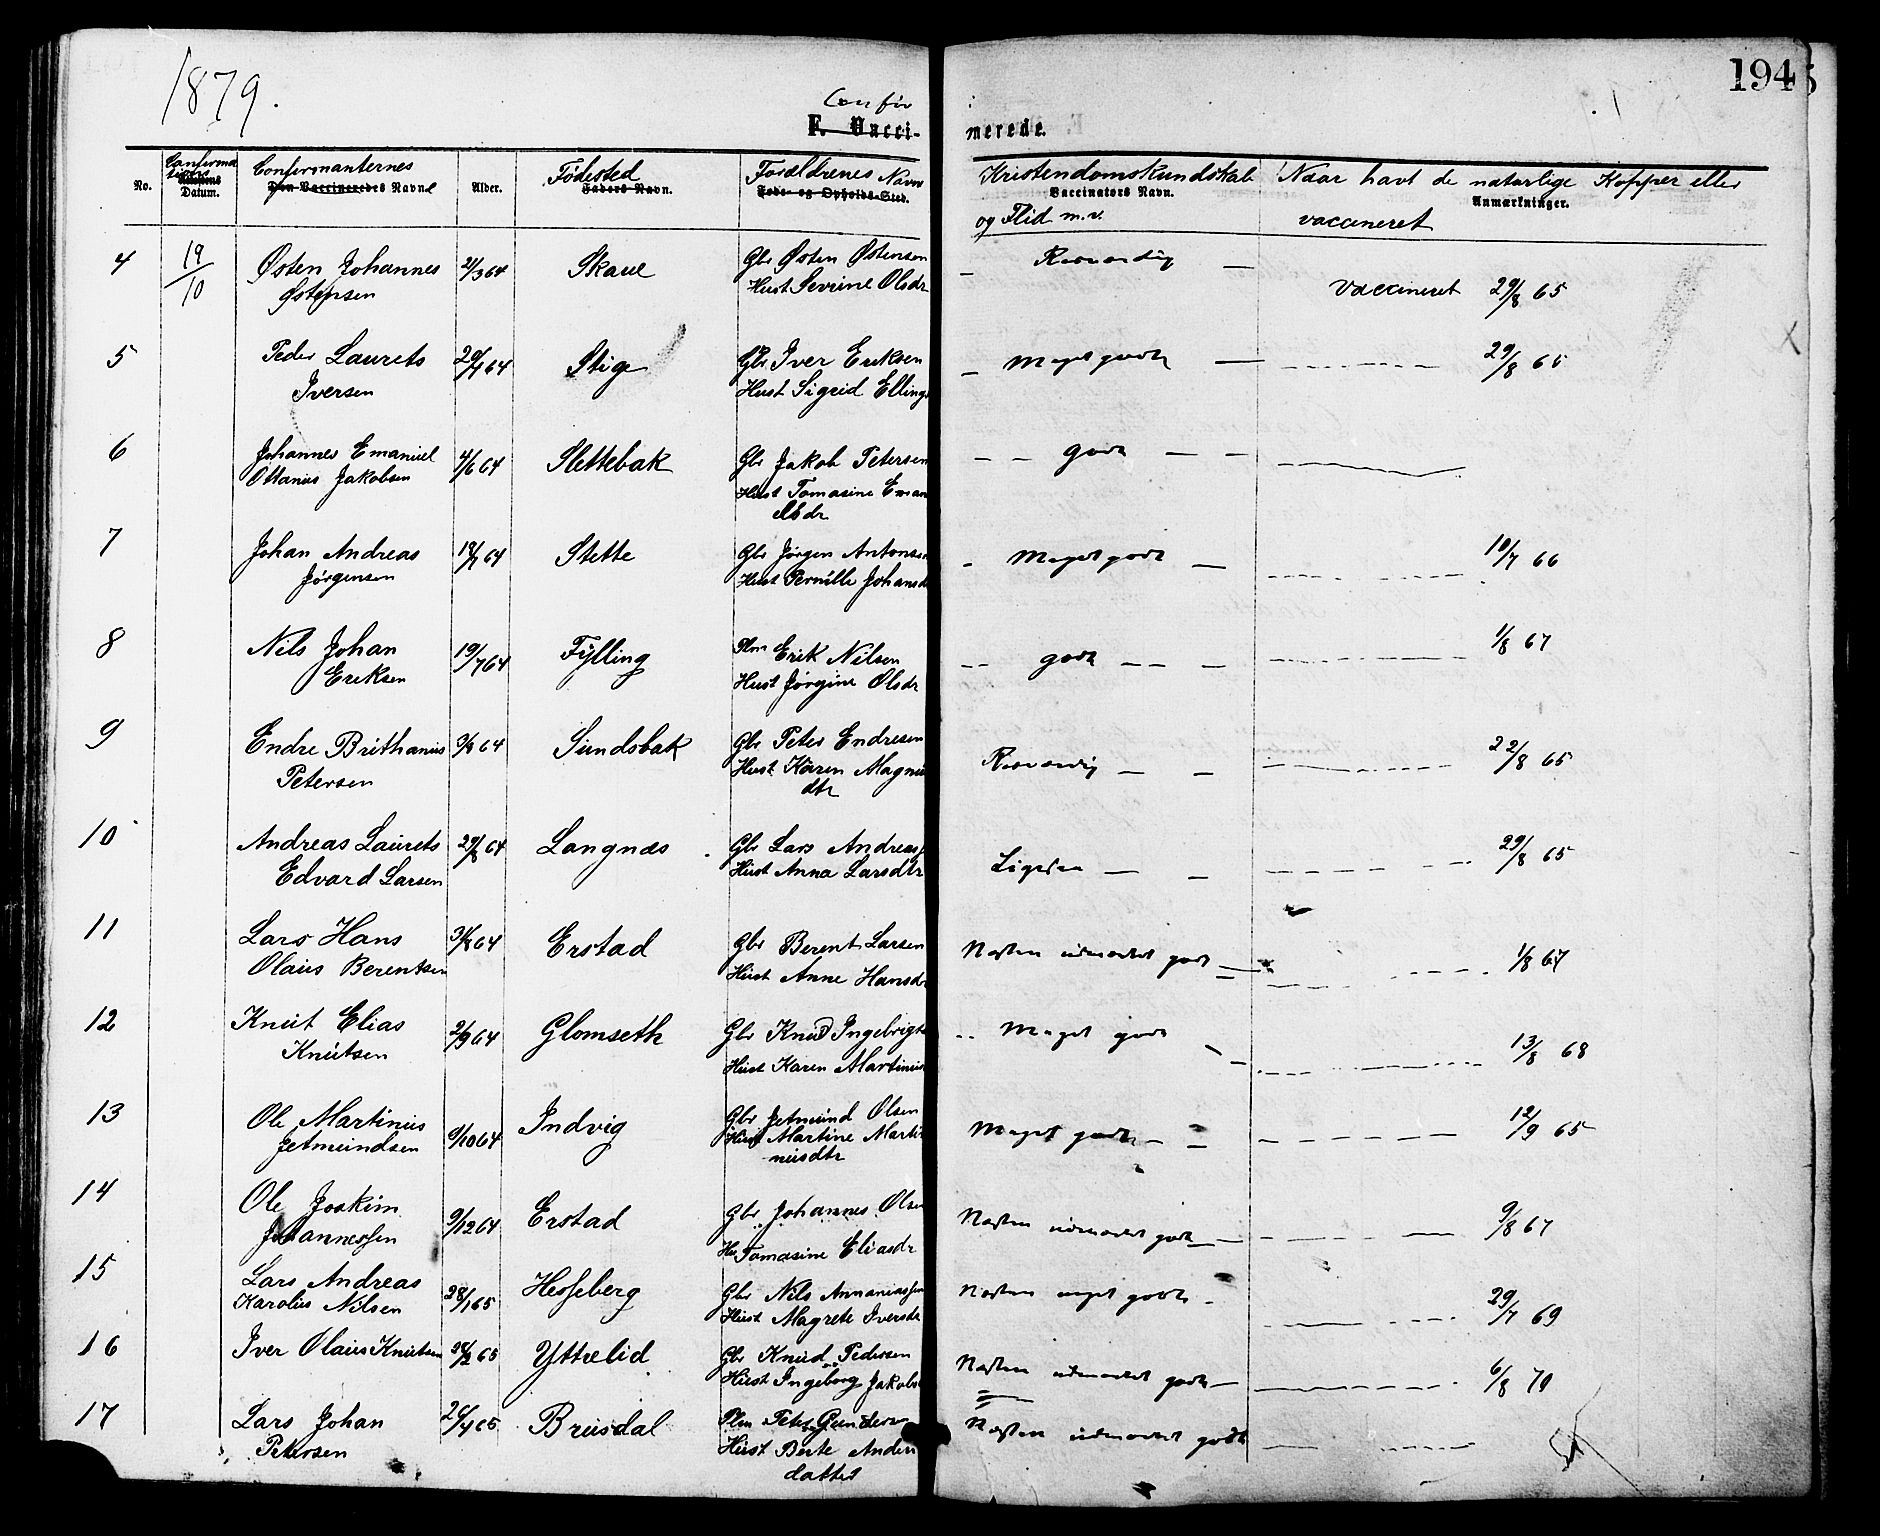 1879.
194
Confir
F. Vacci-
merede.
No.
Confirma
tions
Datum.
Confirmanternes
Den Vaccineredes Navn
Alder.
Fødested
Faders Navn.
Forældrenes Navn
Føde- og Opholds-Sted.
Kristendomskundskab
Vaccinators Navn.
og Flid m.v.
Naar havt de naturlige Kopper eller
Anmærkninger.
vaccineret
4 19/10 Østen Johannes 2/3 64 Skaue Gbr Østen Østensen
Østensen Hust Sevrine Olsdr
Vaccineret 29/8 65
5 Peder Laurets 29/4 64 Stige Gbr Iver Eriksen Meget godt 29/8 65
Iversen Hust Sigrid Ellings
6 Johannes Emanuel 4/6 64 Slettebak Gbr Jakob Petersen godt
Ottanius Jakobsen Hust Tomasine Eman
dr
7 Johan Andreas 18/7 64 Slette Gbr Jørgen Antonsen Meget godt 10/7 66
Jørgensen Hust Pernille Johansd
8 Nils Johan 19/7 64 Fylling Plm Erik Nilsen godt 1/8 67
Eriksen Hust Jørgine Olsdr
9 Endre Brithanius 9/8 64 Sundsbak Gbr Peter Endresen 22/8 65
Petersen Hust Karen Magnus
dtr
10 Andreas Laurets 29/8 64 Langnæs Gbr Lars Andreas Ligesaa 29/8 65
Edvard Larsen Hust Anna Larsdtr
11 Lars Hans 31/8 64 Erstad Gbr Berent Larsen Næsten udmærket godt 1/8 67
Olaus Berentsen Hust Anne Hansdr
12 Knut Elias 2/9 64 Glomseth Gbr Knud Ingebrigts Meget godt 13/8 68
Knutsen Hust Karen Martinus
13 Ole Martinus 9/10 64 Indvig Gbr Jetmund Olsen Meget godt 12/9 65
Jetmundsen Hust Martine Marti
nusdtr
14 Ole Joakim 9/12 64 Erstad Gbr Johannes Olsen Næsten udmærket godt 9/8 67
Johannessen Hu Tomasine Eliasdr
15 Lars Andreas 28/1 65 Hesseberg Gbr Nils Annaniassen Næsten meget godt 29/7 69
Karolius Nilsen Hust Magrete Iversdr
16 Iver Olaus Knutsen 28/2 65 Yttrelid Gbr Knud Pedersen Næsten udmærket godt 6/8 70
Hust Ingeborg Jakobs
17 Lars Johan 26/4 65 Brusdal Plm Peter Gundersen Næsten udmærket godt
Petersen Hust Berte Anders
datter